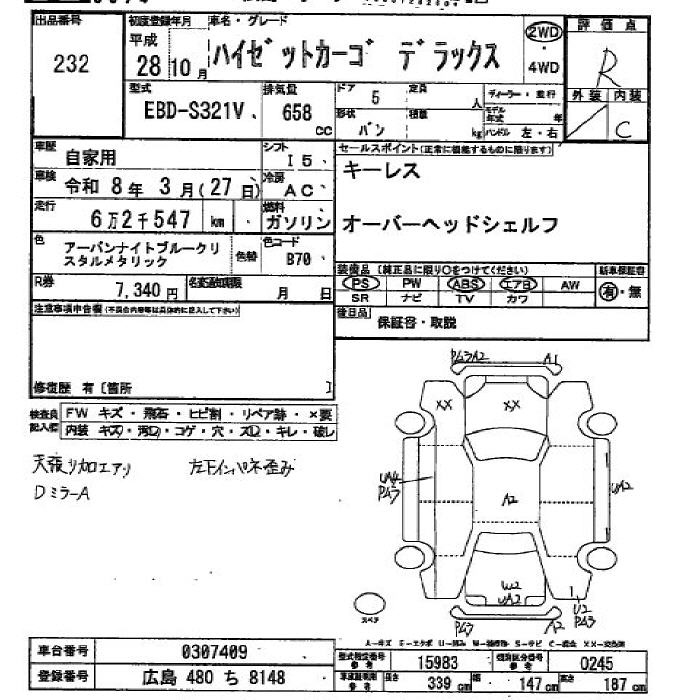 出品番号
232
初度登録年月
平成
28 10 月
車名・グレード
ハイゼットカーゴ デラックス
2WD
4WD
評価点
R
外装 内装
C
型式
EBD-S321V
排気量
658
cc
ドア
5
定員
人
形状
バン
積載
kg
ディーラー・並行
モデル年式
年
ハンドル 左・右
車歴
自家用
シフト
I5
車検
令和 8年 3月(27日)
冷房
AC
走行
6万2千547 km
燃料
ガソリン
色
アーバンナイトブルークリスタルメタリック
色替
色コード
B70
R券
7,340 円
名変通知期限
月 日
セールスポイント(正常に機能するものに限ります)
キーレス
オーバーヘッドシェルフ
装備品 (純正品に限り○をつけてください)
PS PW ABS エアB AW
SR ナビ TV カワ
新車保証書
有・無
後日品
保証書・取説
注意事項申告欄(不具合内容等は具体的に記入して下さい)
修復歴 有〔箇所 〕
検査員記入欄
FW キズ・飛石・ヒビ割・リペア跡・×要
内装 キズ・汚れ・コゲ・穴・スレ・キレ・破レ
天張り加エアリ
左下インパネ歪み
DミラーA
A1
XX
XX
A2
UA2
W2
UA2
U2
PKヌ
A2
スペア
車台番号
0307409
登録番号
広島 480 ち 8148
型式指定番号
参考
15983
類別区分番号
参考
0245
参考
長さ
339 cm
幅
147 cm
高さ
187 cm